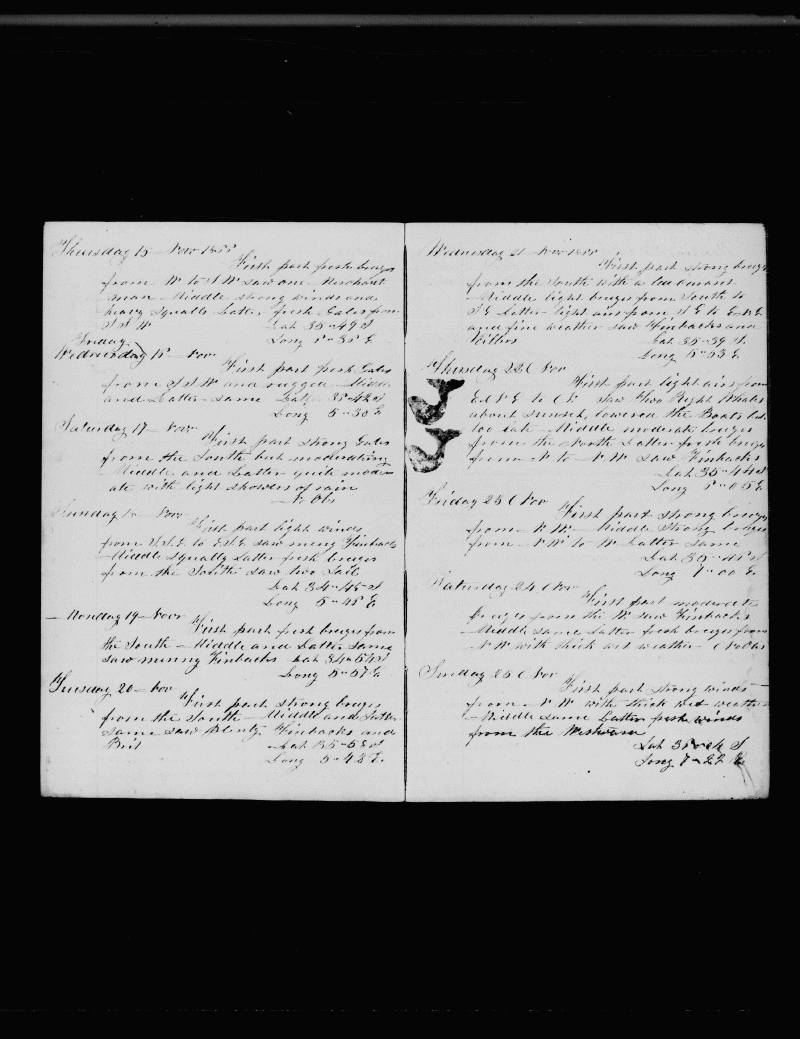 Thursday 15 Nov 1855
First part fresh breezes
from W to SW saw one Merchant
man Middle strong winds and
heavy squalls Latter fresh Gales from
SSW Lat 35-49 S
Long 5-35 E
Friday
Wednesday 16 Nov
First part fresh Gales
from SSW and rugged Middle
and Latter same Lat 35-42 S
Long 5-30 E
Saturday 17 Nov
First part strong Gales
from the South but moderating
Middle and Latter quite moder
ate with light showers of rain
No Obs
Sunday 18 Nov
First part light winds
from SSE to ESE saw meny Finbacks
Middle squally Latter fresh breezes
from the South saw two Sail
Lat 34-45 S
Long 5-45 E
Monday 19 Nov
First part fresh breezes from
the South Middle and Latter same
saw meny Finbacks Lat 34-54 S
Long 5-57 E
Tuesday 20 Nov
First part strong breezes
from the South Middle and Latter
same saw Plenty Finbacks and
Brit Lat 35-53 S
Long 5-42 E
Wednesday 21 Nov 1855
First part strong breezes
from the South with a lee current
Middle light breezes from South to
SE Latter light airs from SE to ENE
and fine weather saw Finbacks and
Killers Lat 35-39 S
Long 5-53 E
Thursday 22 Nov
First part light airs from
ENE to N saw Two Right Whales
about sunset, lowered the Boats but
too late Middle moderate breezes
from the North Latter fresh breezes
from N to NW saw Finbacks
Lat 35-44 S
Long 5-05 E
Friday 23 Nov
First part strong breezes
from NW Middle Strong breezes
from NW to W Latter same
Lat 35-
Long 7-00 E
Saturday 24 Nov
First part moderate
breezes from the W saw Finbacks
Middle same Latter fresh breezes from
NW with thick wet weather No Obs
Sunday 25 Nov
First part strong winds
from NW with thick wet weather
Middle same Latter fresh winds
from the Westward
Lat S
Long 7-22 E